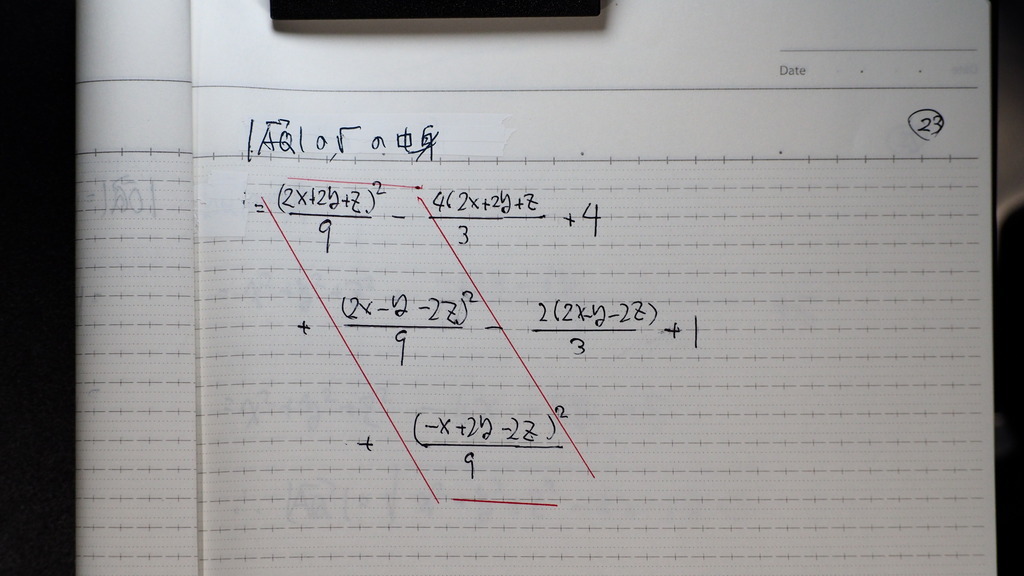 Date
㉓
|AQ→| の √ の 中身
= (2x+2y+z)²/9 - 4(2x+2y+z/3 + 4
+ (2x-y-2z)²/9 - 2(2x-y-2z)/3 + 1
+ (-x+2y-2z)²/9